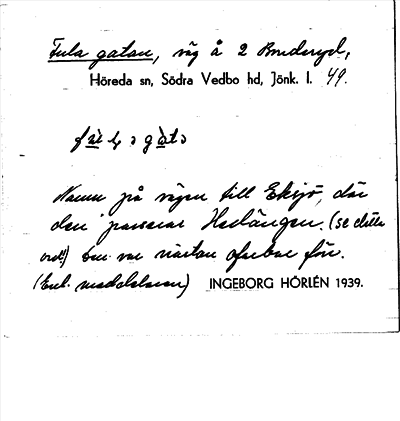 Fula gatan, väg å 2 Bruderyd,
Höreda sn, Södra Vedbo hd, Jönk. l. 49.
Namn på vägen till Eksjö, där
den passerar Herlängen. (se detta
ord!) Den var nästan ofarbar förr.
(Enl. meddelaren) INGEBORG HÖRLÉN 1939.